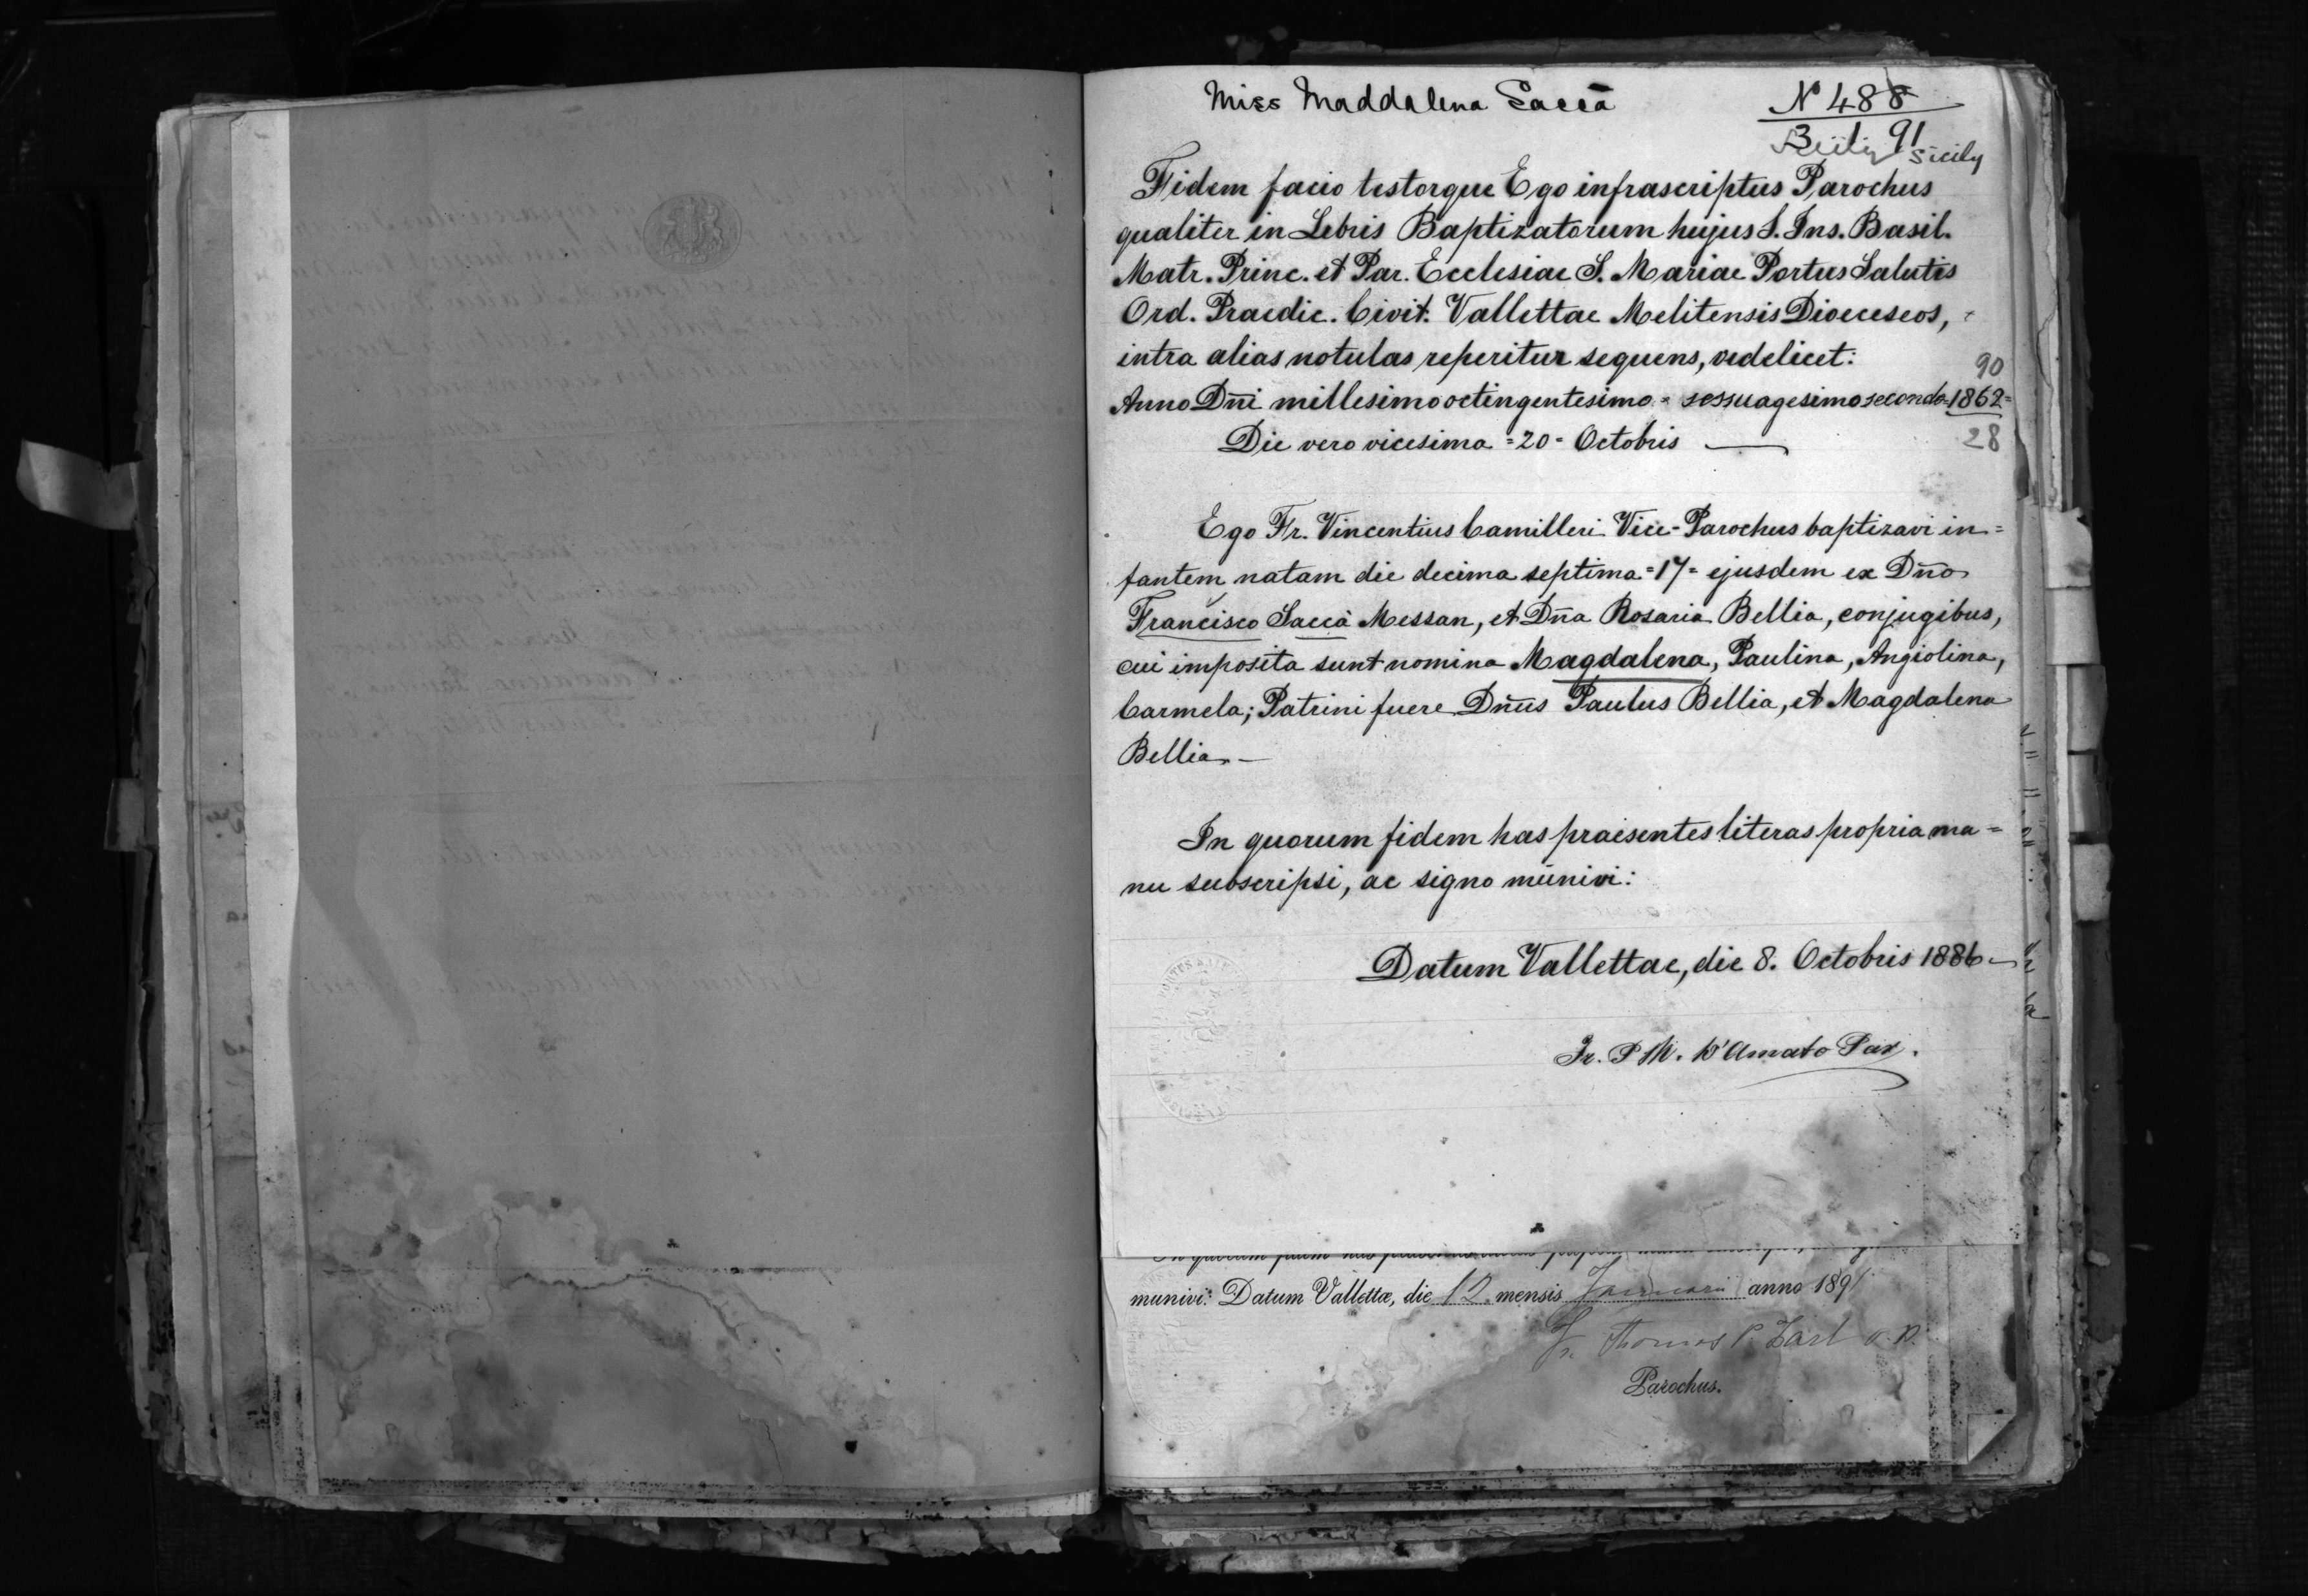 Miss Maddalena Saccà
N 488
91 Sicily
Fidem facio testorque Ego infrascriptus Parochus
qualiter in Lebris Baptizatorum hujus S. Ins. Basil.
Matr. Princ. et Par. Ecclesiae S. Mariae Portus Salutis
Ord. Praedic. Civit. Vallettae Melitensis Dioeceseos,
intra alias notulas reperitur sequens, vedelicet:
90
Anno Dñi millesimo octingentesimo = sessuagesimo secondo = 1862 =
Die vero vicesima = 20 = Octobris
28
Ego Fr. Vincentius Camilleri Vice-Parochus baptizavi in=
fantem natam die decima septima = 17 = ejusdem ex Dño
Francisco Saccà Messan, et Dña Rosaria Bellia, conjugibus,
cui imposita sunt nomina Magdalena, Paulina, Angiolina,
Carmela; Patrini fuere Dñus Paulus Bellia, et Magdalena
Bellia.—
In quorum fidem has praesentes literas propria ma=
nu subscripsi, ac signo munivi:
Datum Vallettae, die 8. Octobris 1886
Fr. P M. D'Amato Par.
munivi: Datum Vallettæ, die 12 mensis Januarii anno 1891
Fr. Thomas P. Zarb O.P.
Parochus.